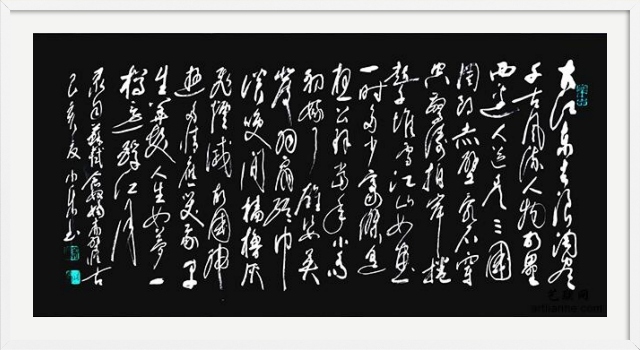 大江东去浪淘尽
千古风流人物故垒
西边人道是三国
周郎赤壁乱石穿
空惊涛拍岸卷
起千堆雪江山如画
一时多少豪杰遥
想公瑾当年小乔
初嫁了雄姿英
发羽扇纶巾
谈笑间樯橹灰
飞烟灭故国神
游多情应笑我早
生华发人生如梦一
樽还酹江月
录自苏轼念奴娇赤壁怀古
己亥夏小书